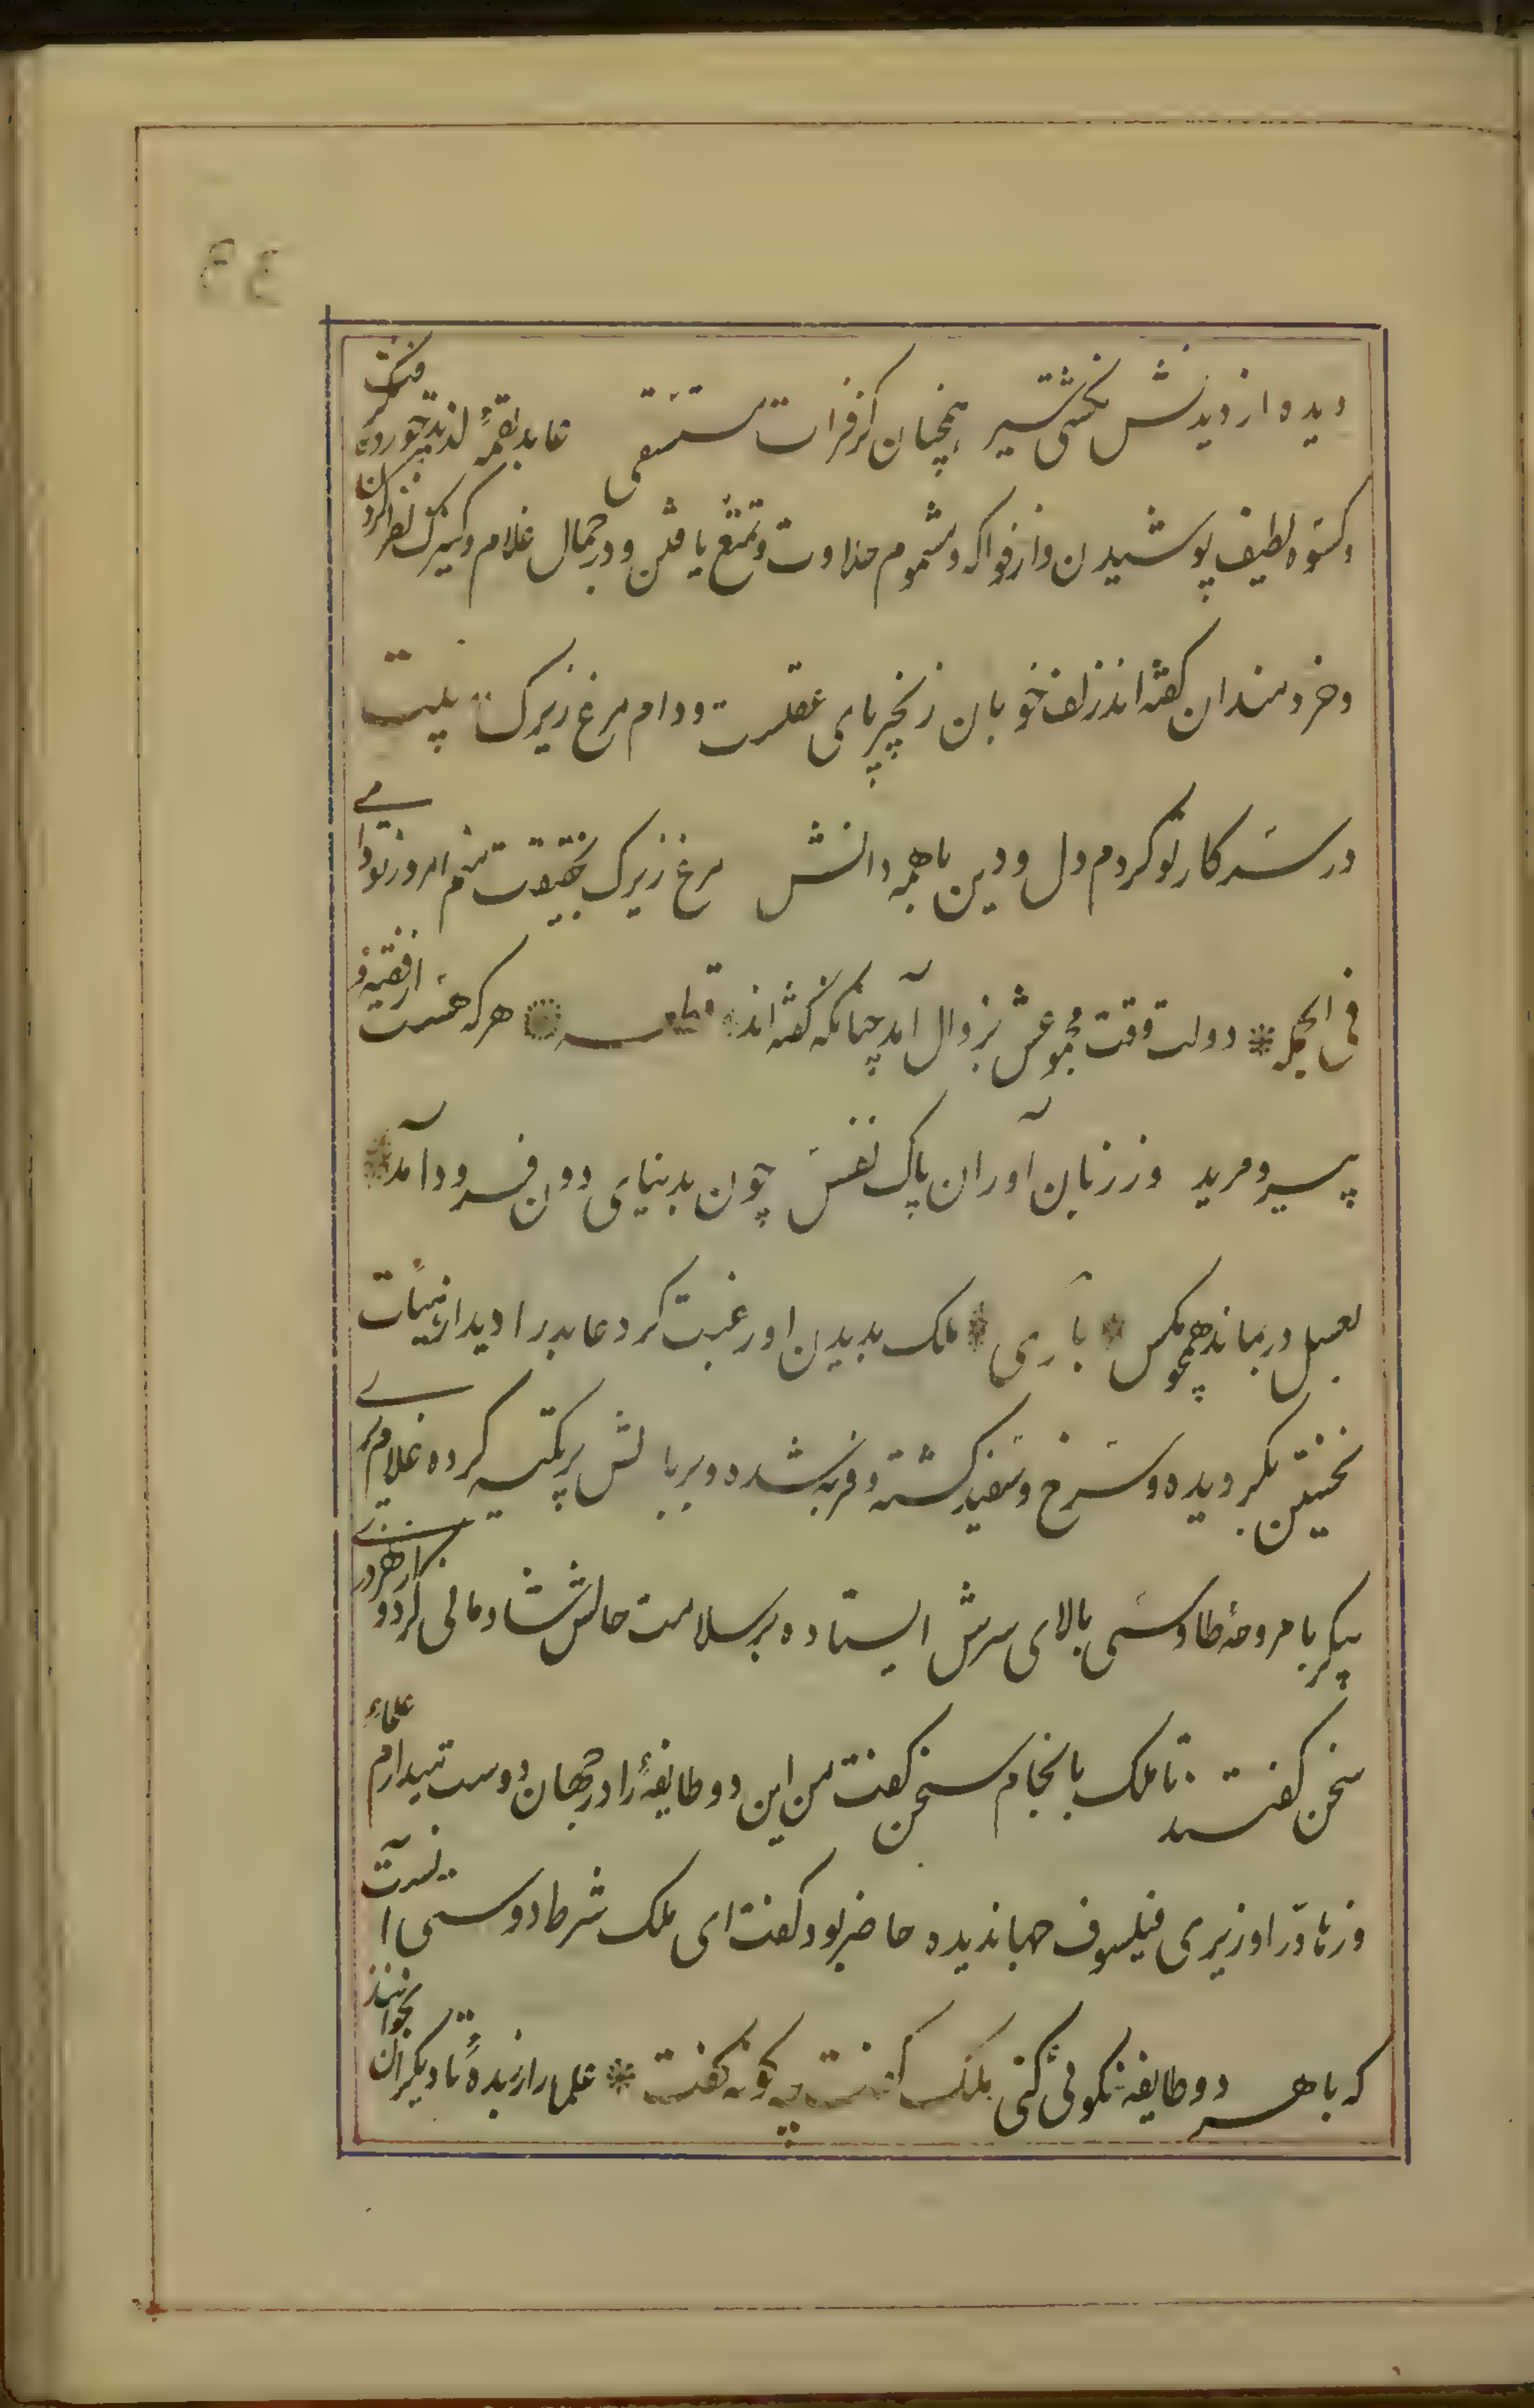 دیده از دیدنش نگشتی سیر همچنان کز فرات مستسقی عابد لقمهٔ لذیذ خوردن گرفت
و کسوه لطیف پوشیدن و از فواکه و مشموم حلاوت و تمتع یافتن و در جمال غلام و کنیزک نظر کردن
و خردمندان گفته اند زلف خوبان زنجیر پای عقلست و دام مرغ زیرک بیت
در سر کار تو کردم دل و دین با همه دانش مرغ زیرک بحقیقت منم امروز تو دامی
فی الجمله دولت وقت مجموعش بزوال آمد چنانکه گفته اند قطعه هر که هست از فقیه و
پیر و مرید وز زبان آوران پاک نفس چون بدنیای دون فرود آمد
بعسل در بماند همچو مگس باری ملک بدیدن او رغبت کرد عابد را دید از هیئات
نخستین بگردیده و سرخ و سفید گشته و فربه شده و بر بالش پر تکیه کرده غلام پری
پیکر با مروحهٔ طاوسی بالای سرش ایستاده بر سلامت حالش شادمانی کرد و از هر دری
سخن گفتند تا ملک بانجام سخن گفت من این دو طایفهٔ را در جهان دوست میدارم علماء
و زهاد را وزیری فیلسوف جهاندیده حاضر بود گفت ای ملک شرط دوستی آنست
که با هر دو طایفه نکوئی کنی ملک گفت چه گونه گفت علما را زر بده تا دیگران بخوانند